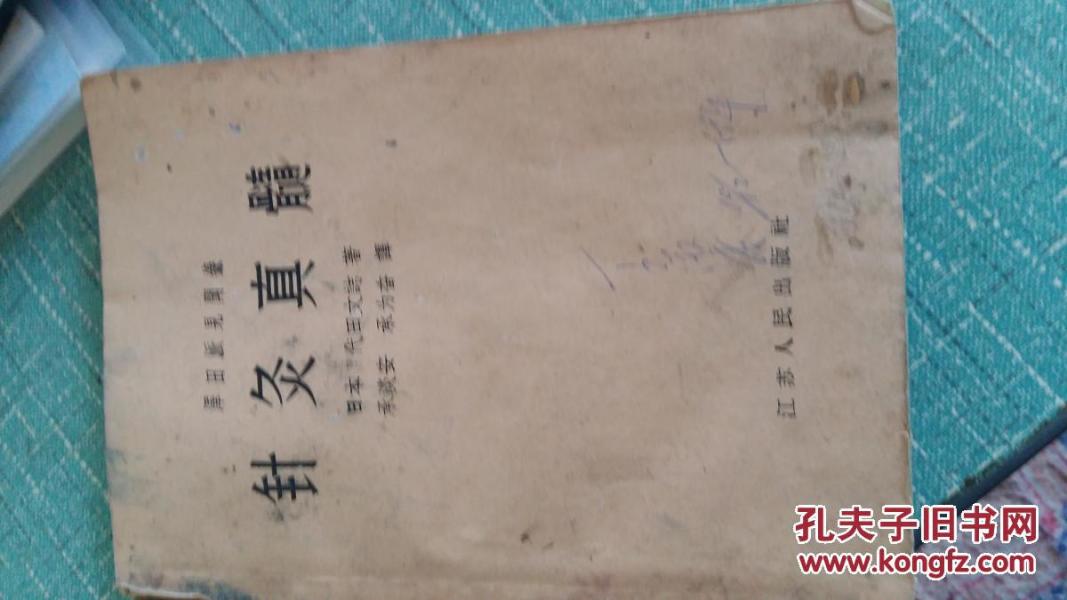 泽田派见闻录
针灸真髓
日本 代田文誌著
承淡安 承为奋 譯
江苏人民出版社
孔夫子旧书网
www.kongfz.com